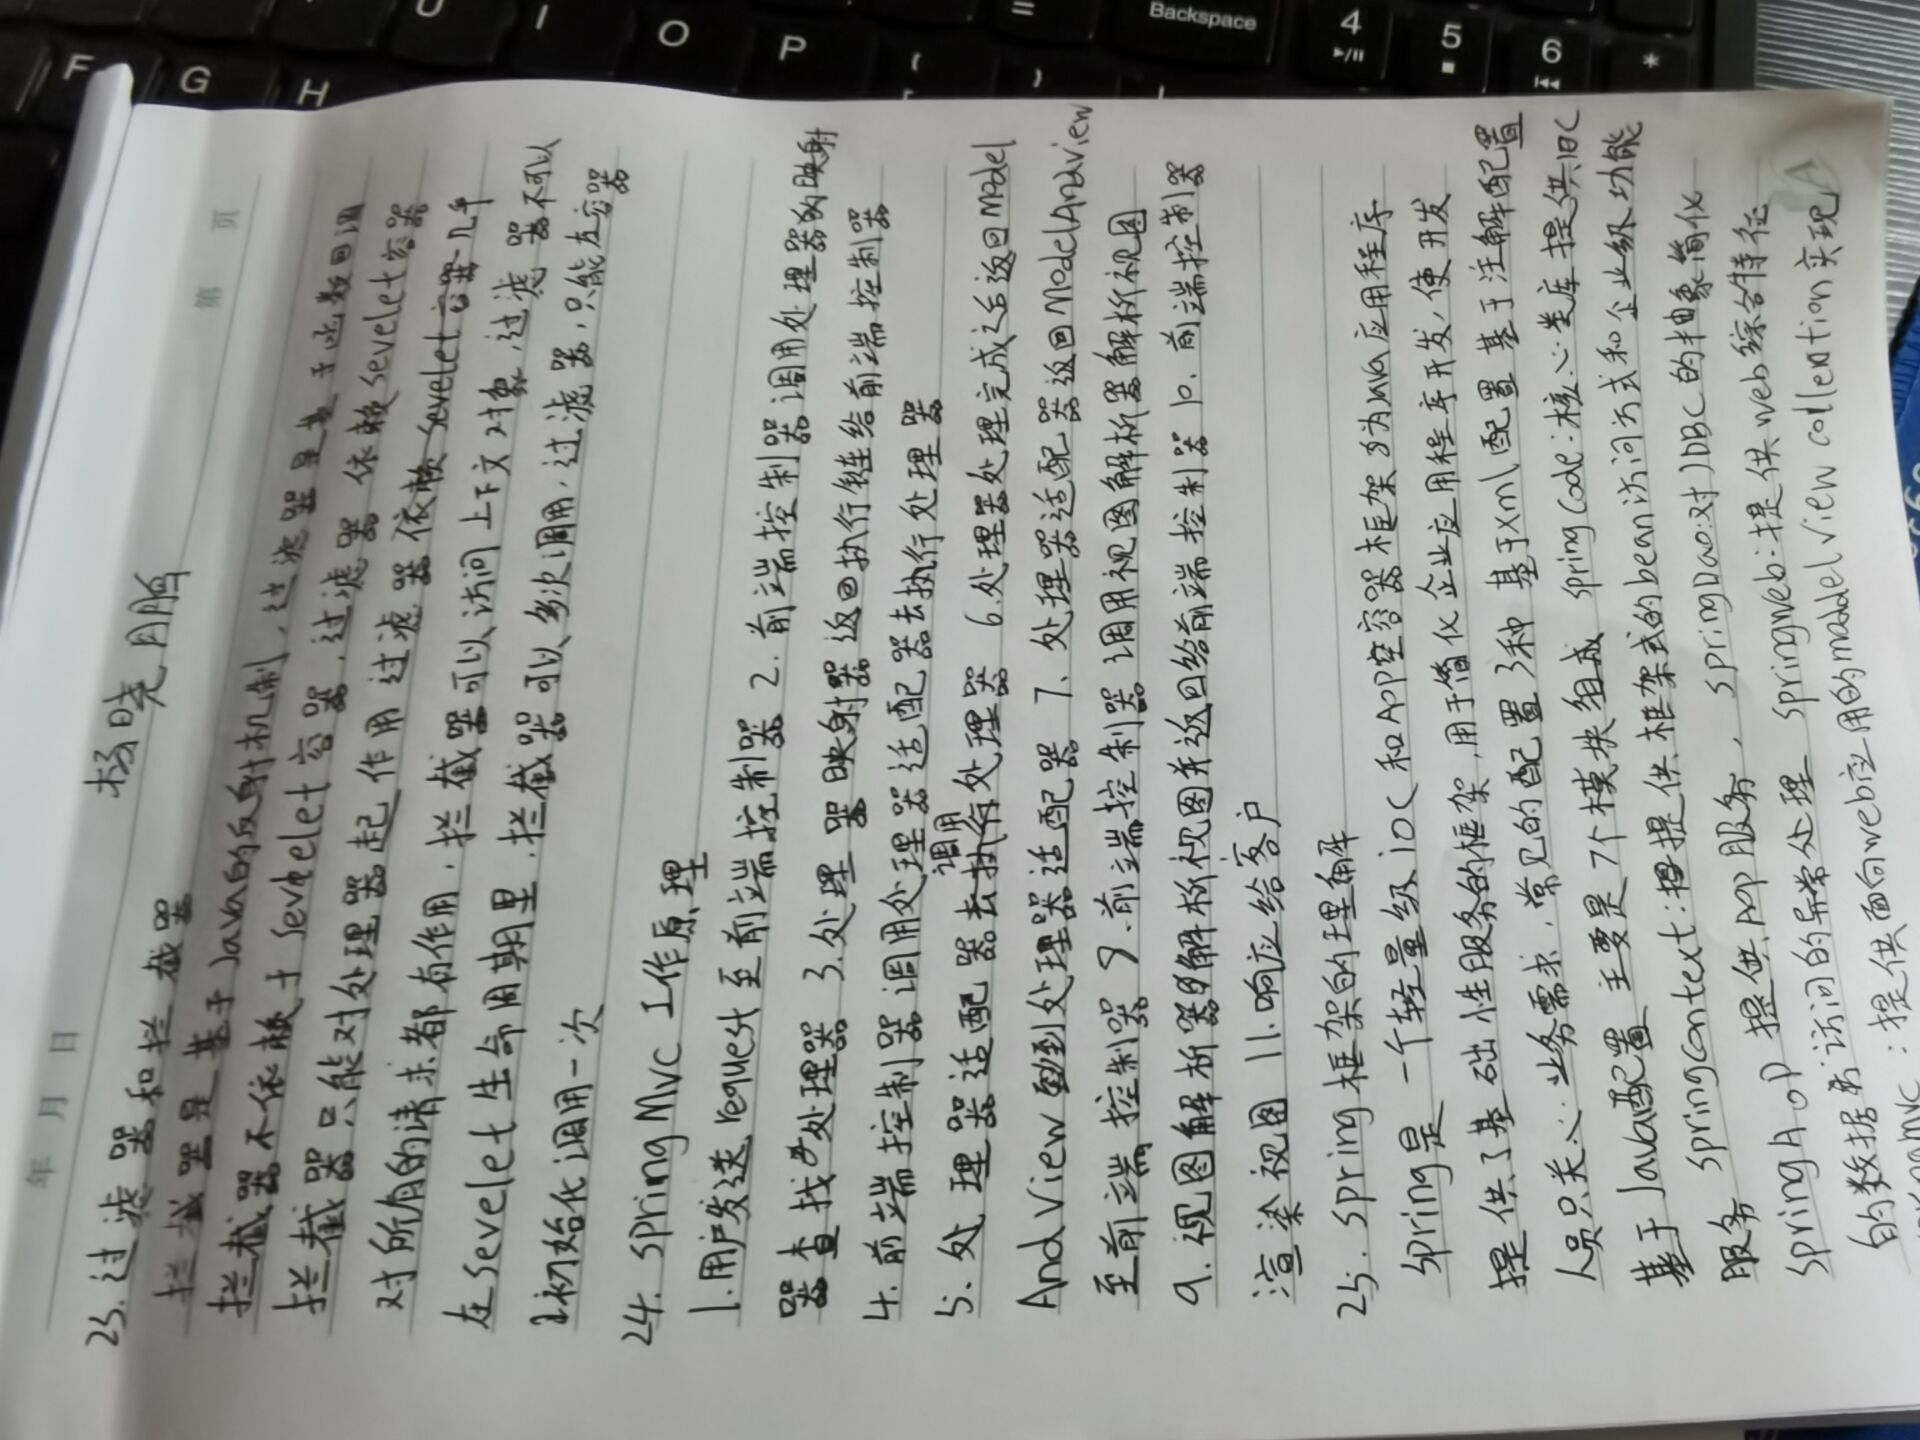 第 页
年 月 日
杨晓鹏
23.过滤器和拦截器
拦截器是基于Java的反射机制,过滤器是基于函数回调
拦截器不依赖于Sevelet容器,过滤器 依赖Sevelet容器
拦截器只能对处理器起作用 过滤器依赖Sevelet容器几乎
对所有的请求都有作用,拦截器可以访问上下文对象,过滤器不可以
在Sevelet生命周期里,拦截器可以多次调用,过滤器,只能在容器
初始化调用一次
24. Spring Mvc 工作原理
1.用户发送request至前端控制器 2.前端控制器调用处理器的映射
器查找处理器 3.处理器映射器返回执行链给前端控制器
4.前端控制器调用处理器适配器去执行处理器
5.处理器适配器去调用处理器 6.处理器处理完成之后返回Model
And View 到处理器适配器 7.处理器适配器返回ModelAndView
至前端控制器 8.前端控制器调用视图解析器解析视图
9.视图解析器解析视图并返回给前端控制器 10.前端控制器
渲染视图 11.响应给客户
25. Spring框架的理解
Spring是一个轻量级IOC和AOP容器框架为Java应用程序
提供了基础性服务的框架,用于简化企业应用程序开发,使开发
人员只关心业务需求,常见的配置3种 基于Xml配置 基于注解配置
基于Java配置 主要是7个模块组成 Spring Code:核心类库提供IOC
服务 SpringContext:提供框架式的bean访问方式和企业级功能
SpringAOP 提供AOP服务, SpringDao:对JDBC的抽象简化
的数据访问的异常处理 Springweb:提供web综合特征
:提供面向web应用的moddel View collention实现